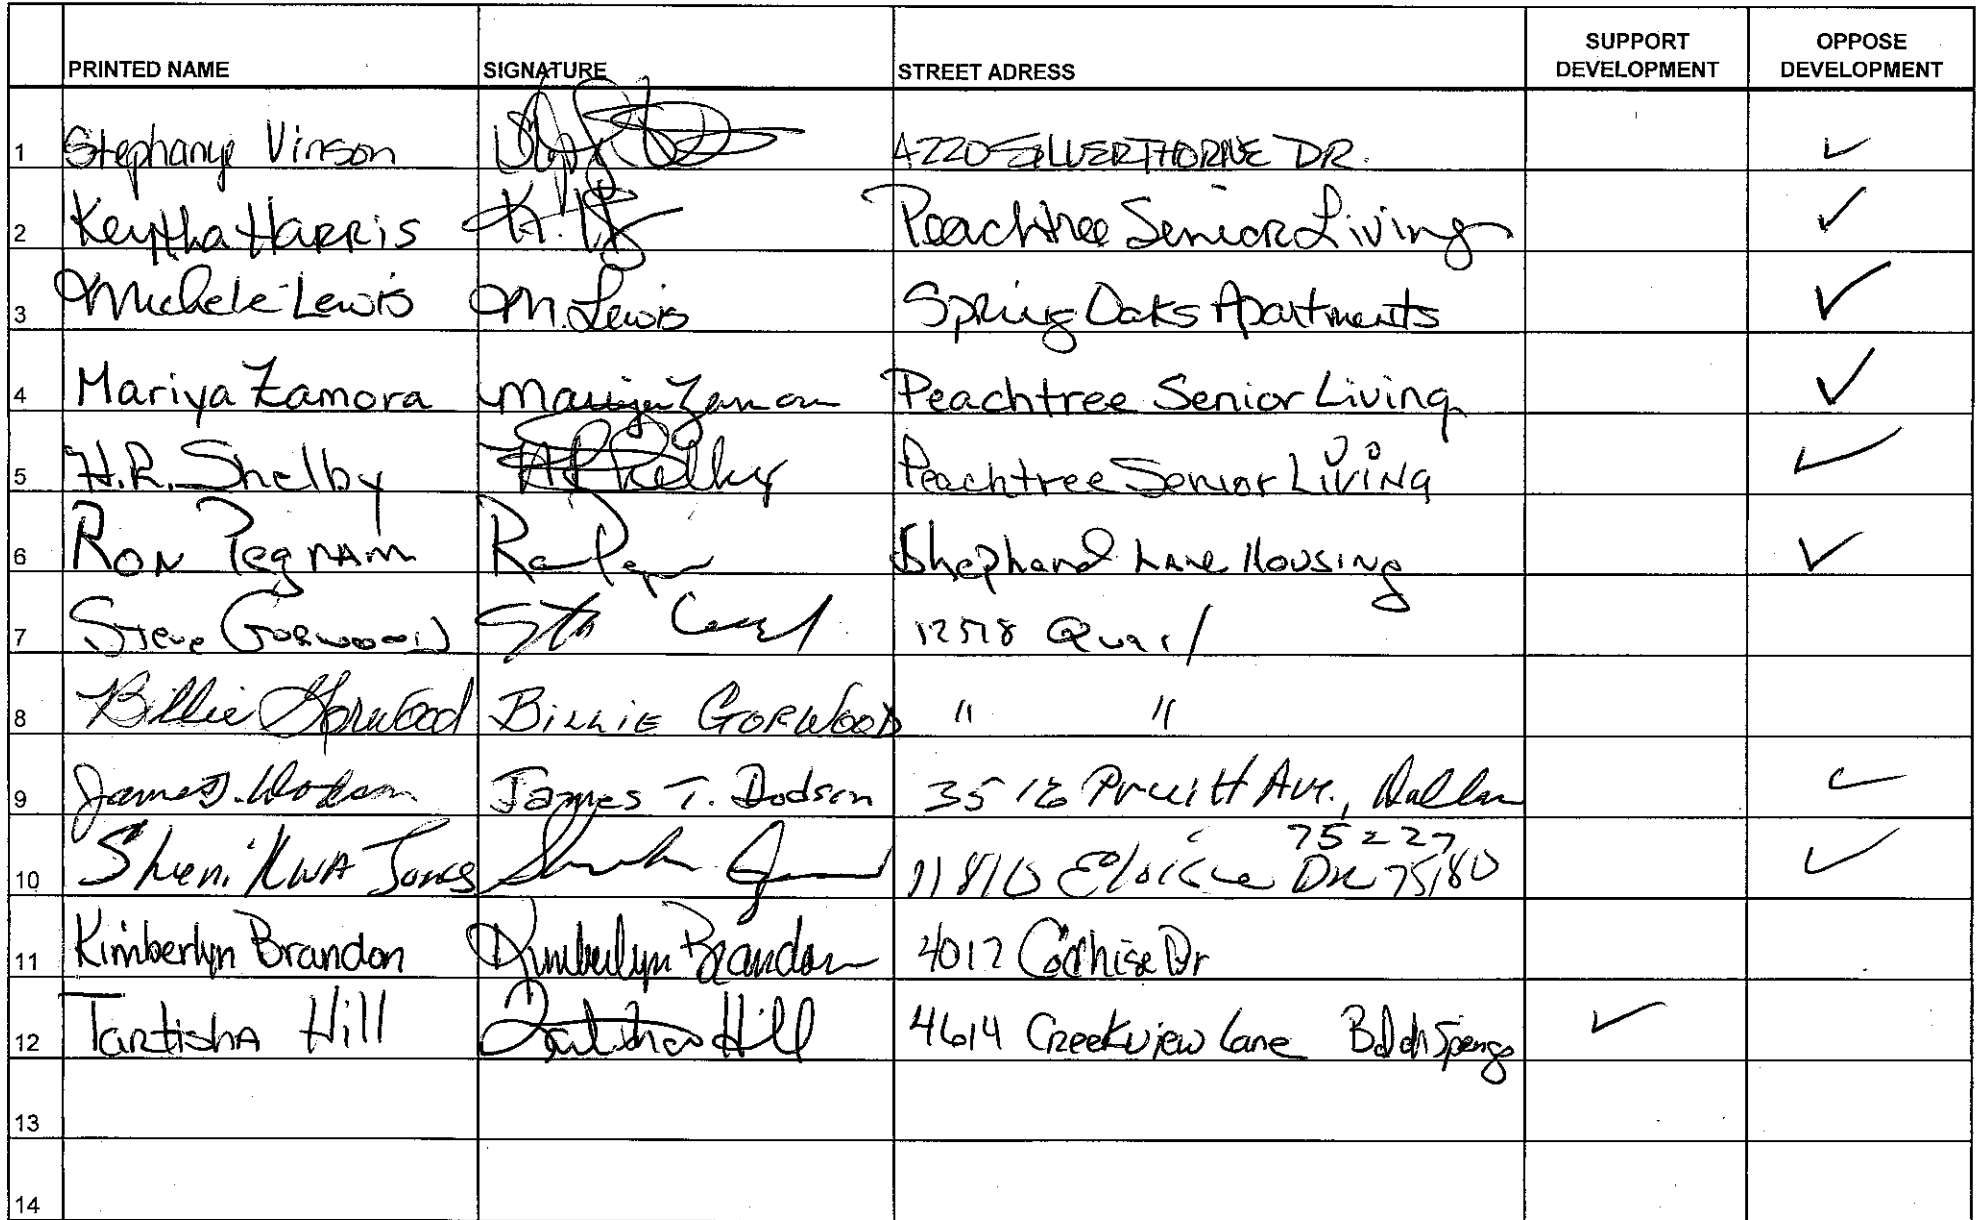 PRINTED NAME SIGNATURE STREET ADRESS SUPPORT DEVELOPMENT OPPOSE DEVELOPMENT
1 Stephanye Vinson 4220 SILVERTHORNE DR. ✓
2 Keytha Harris K. H Peachtree Senior Living ✓
3 Michele Lewis M. Lewis Spring Oaks Apartments ✓
4 Mariya Zamora Mariya Zamora Peachtree Senior Living ✓
5 H.R. Shelby HR Shelby Peachtree Senior Living ✓
6 Ron Pegnam Shephard Lane Housing ✓
7 Steve Gorwood Quail
8 Billie Gorwood BILLIE GORWOOD " "
9 James T. Dodson James T. Dodson Pruitt Ave., Dallas ✓
75227
10 Jones Dr ✓
11 Kimberlyn Brandon Kimberlyn Brandon 4017 Cochise Dr
12 Tartisha Hill Hill 4614 Creekview Lane ✓
13
14